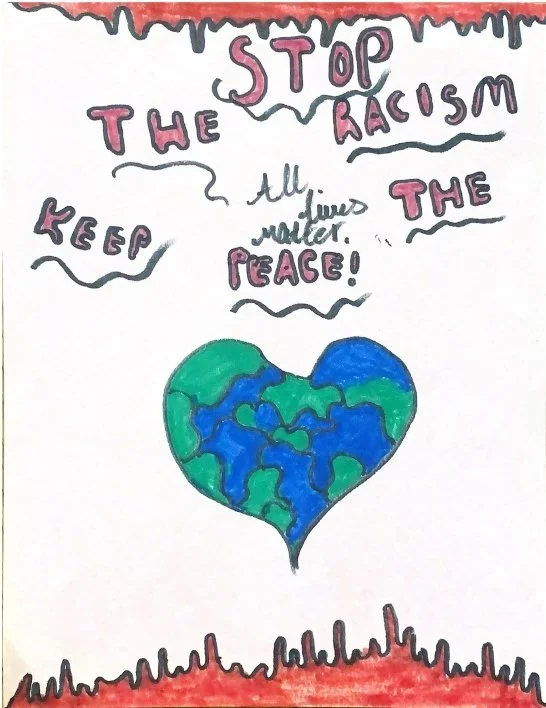 STOP
THE RACISM
All
lives
matter.
KEEP THE
PEACE!